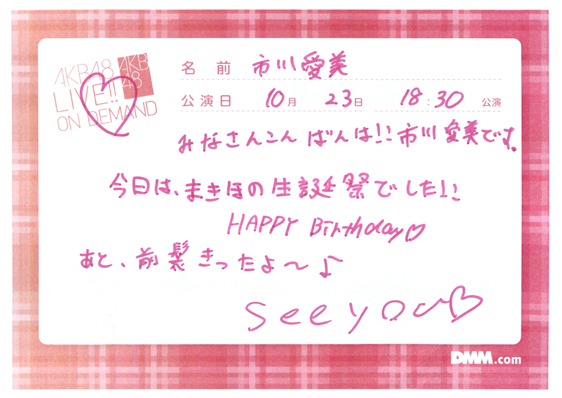 AKB48
LIVE!!
ON DEMAND
AKB
48
名前 市川愛美
公演日 10月 23日 18:30 公演
みなさんこんばんは!! 市川愛美です。
今日は、まきほの生誕祭でした!!
HAPPY Birthday♡
あと、前髪きったよ〜♪
see you♡
DMM.com